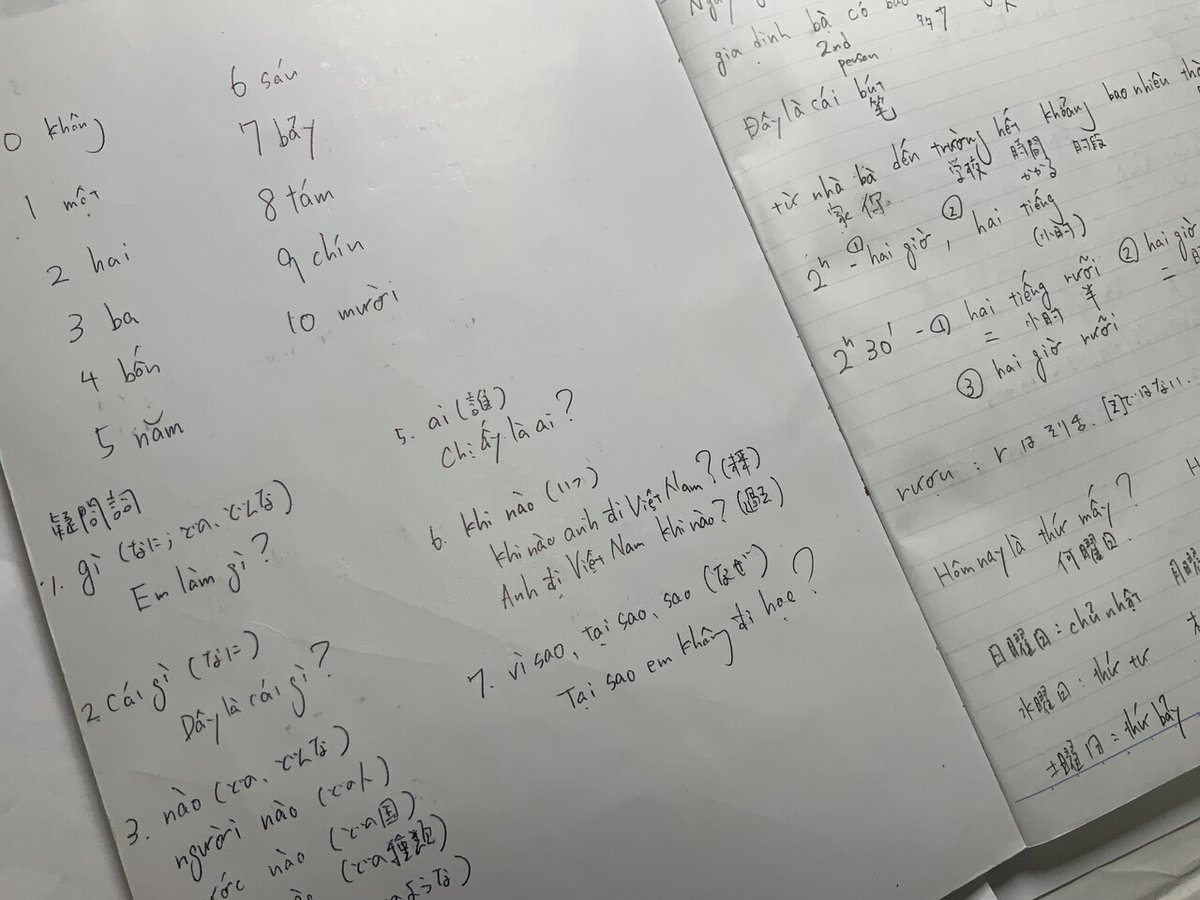 0 không
1 một
2 hai
3 ba
4 bốn
5 năm
6 sáu
7 bảy
8 tám
9 chín
10 mười
疑問詞
1. gì (なに; どの、どんな)
Em làm gì?
2. Cái gì (なに)
Đây là cái gì?
3. nào (どの、どんな)
người nào (どの人)
ớc nào (どの国)
(どの種類)
ような)
5. ai (誰)
Chị ấy là ai?
6. khi nào (いつ)
khi nào anh đi Việt Nam? (将)
Anh đi Việt Nam khi nào? (過去)
7. vì sao, tại sao, sao (なぜ)
Tại sao em không đi học?
gia dinh bà có bao
2nd
person
Đây là cái bút
笔
từ nhà bà dến trường hết khoảng bao nhiêu
家 你 学校 時間 时段
かかる
2h - ① hai giờ, ② hai tiếng
(小时)
2h 30' - ① hai tiếng rưỡi ② hai giờ
= 小时 半 =
③ hai giờ rưỡi
rượu : r は [z]ではない.
Hôm nay là thứ mấy?
何曜日.
日曜日 = chủ nhật 月曜
水曜日 : thứ tư
土曜日 = thứ bảy